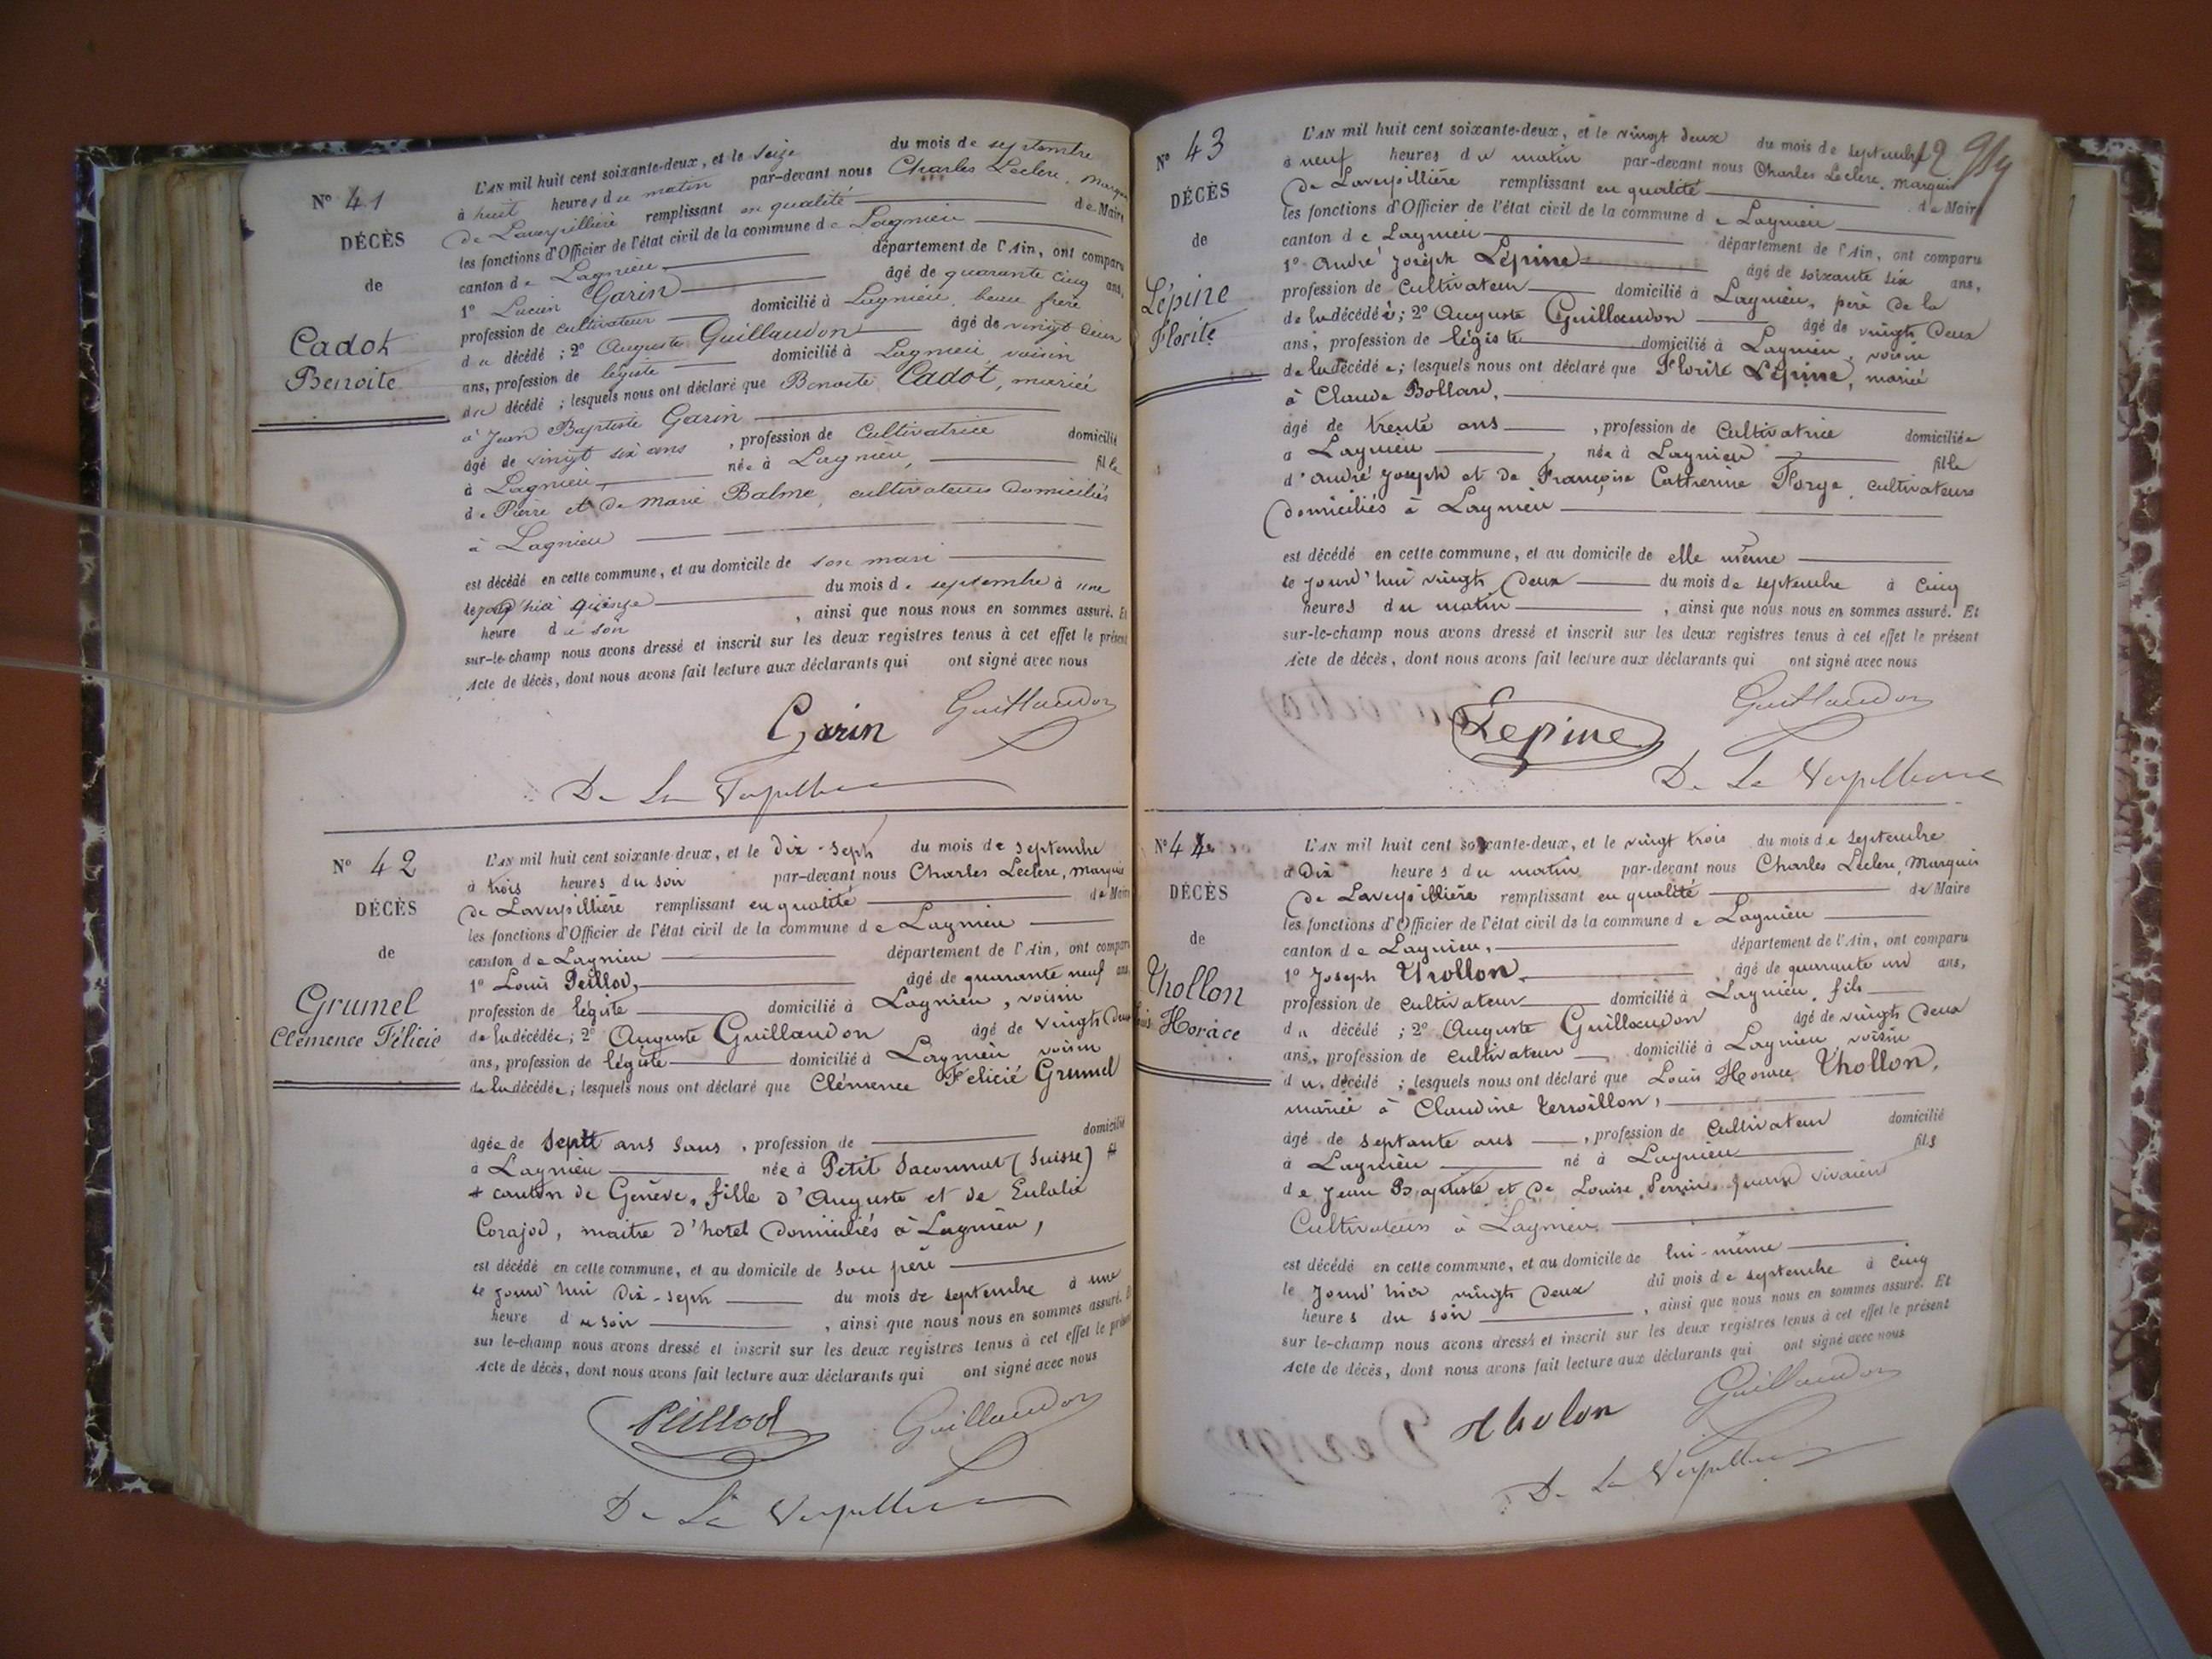 N° 41
DÉCÈS
de
Cadot
Benoite
L'AN mil huit cent soixante-deux, et le seize du mois de septembre
à huit heures du matin par-devant nous Charles Leclerc, Marquis
de Laverpillière remplissant en qualité de Maire
les fonctions d'Officier de l'état civil de la commune de Lagnieu
canton de Lagnieu département de l'Ain, ont comparu
1° Lucien Garin âgé de quarante cinq ans,
profession de cultivateur domicilié à Lagnieu, beau frère
du décédé ; 2° Auguste Guillaudon âgé de vingt deux
ans, profession de légiste domicilié à Lagnieu, voisin
du décédé ; lesquels nous ont déclaré que Benoite Cadot, mariée
à Jean Baptiste Garin
âgé de vingt six ans , profession de Cultivatrice domicilié
à Lagnieu, née à Lagnieu, fille
de Pierre et de Marie Balme, cultivateurs domiciliés
à Lagnieu
est décédé en cette commune, et au domicile de son mari
le jour d'hier quinze du mois de septembre à une
heure du soir , ainsi que nous nous en sommes assuré. Et
sur-le-champ nous avons dressé et inscrit sur les deux registres tenus à cet effet le présent
Acte de décès, dont nous avons fait lecture aux déclarants qui ont signé avec nous
Garin Guillaudon
De La Verpilliere
N° 42
DÉCÈS
de
Grumel
Clémence Félicie
L'AN mil huit cent soixante-deux, et le dix-sept du mois de septembre
à trois heures du soir par-devant nous Charles Leclerc, Marquis
de Laverpillière remplissant en qualité de Maire
les fonctions d'Officier de l'état civil de la commune de Lagnieu
canton de Lagnieu département de l'Ain, ont comparu
1° Louis Peillod, âgé de quarante neuf ans,
profession de légiste domicilié à Lagnieu, voisin
de la décédée; 2° Auguste Guillaudon âgé de vingt deux
ans, profession de légiste domicilié à Lagnieu voisin
de la décédée; lesquels nous ont déclaré que Clémence Félicie Grumel
âgée de sept ans sans , profession de domicilié
à Lagnieu née à Petit Saconnex (Suisse)
canton de Genève, fille d'Auguste et de Eulalie
Corajod, maitre d'hotel domiciliés à Lagnieu,
est décédé en cette commune, et au domicile de son père
le jourd'hui dix-sept du mois de septembre à une
heure du soir , ainsi que nous nous en sommes assuré. Et
sur le-champ nous avons dressé et inscrit sur les deux registres tenus à cet effet le présent
Acte de décès, dont nous avons fait lecture aux déclarants qui ont signé avec nous
Peillod Guillaudon
De La Verpilliere
N° 43
DÉCÈS
de
Lépine
Florite
L'AN mil huit cent soixante-deux, et le vingt deux du mois de septembre
à neuf heures du matin par-devant nous Charles Leclerc, Marquis
de Laverpillière remplissant en qualité de Maire
les fonctions d'Officier de l'état civil de la commune de Lagnieu
canton de Lagnieu département de l'Ain, ont comparu
1° André Joseph Lépine âgé de soixante six ans,
profession de Cultivateur domicilié à Lagnieu, père de la
de la décédée; 2° Auguste Guillaudon âgé de vingt deux
ans, profession de légiste domicilié à Lagnieu, voisin
de la décédée; lesquels nous ont déclaré que Florite Lépine, mariée
à Claude Bolland,
âgé de trente ans , profession de Cultivatrice domiciliée
à Lagnieu née à Lagnieu fille
d'André Joseph et de Françoise Catherine Florge, cultivateurs
domiciliés à Lagnieu
est décédé en cette commune, et au domicile de elle même
le jourd'hui vingt deux du mois de septembre à cinq
heures du matin , ainsi que nous nous en sommes assuré. Et
sur-le-champ nous avons dressé et inscrit sur les deux registres tenus à cet effet le présent
Acte de décès, dont nous avons fait lecture aux déclarants qui ont signé avec nous
Lepine Guillaudon
De La Verpilliere
N° 44
DÉCÈS
de
Thollon
Horace
L'AN mil huit cent soixante-deux, et le vingt trois du mois de septembre
à dix heures du matin par-devant nous Charles Leclerc, Marquis
de Laverpillière remplissant en qualité de Maire
les fonctions d'Officier de l'état civil de la commune de Lagnieu
canton de Lagnieu, département de l'Ain, ont comparu
1° Joseph Thollon âgé de quarante un ans,
profession de cultivateur domicilié à Lagnieu, fils
du décédé ; 2° Auguste Guillaudon âgé de vingt deux
ans, profession de cultivateur domicilié à Lagnieu, voisin
du décédé ; lesquels nous ont déclaré que Louis Horace Thollon,
mariée à Claudine Terroillon,
âgé de septante ans , profession de Cultivateur domicilié
à Lagnieu né à Lagnieu fils
de Jean Baptiste et de Louise Perrin quand vivaient
Cultivateurs à Lagnieu
est décédé en cette commune, et au domicile de lui-même
le jourd'hier vingt deux du mois de septembre à cinq
heures du soir , ainsi que nous nous en sommes assuré. Et
sur le-champ nous avons dressé et inscrit sur les deux registres tenus à cet effet le présent
Acte de décès, dont nous avons fait lecture aux déclarants qui ont signé avec nous
Tholon Guillaudon
De La Verpilliere